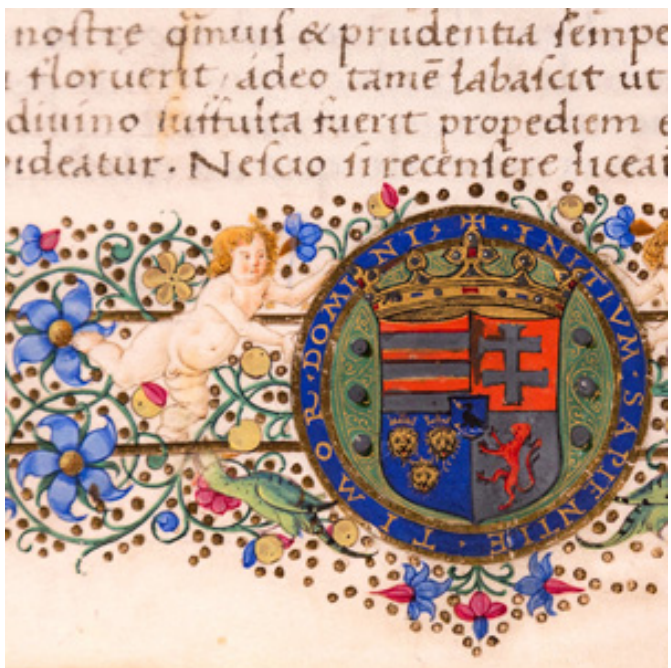 noſtrę qmuiſ & prudentia ſempe
floruerit, adeo tamē labaſcit ut
diuino ſuffulta fuerit propediem
uideatur. Neſcio ſi recenſere licea
✠ INITIVM · SAPIENTIE · TIMOR · DOMINI ·